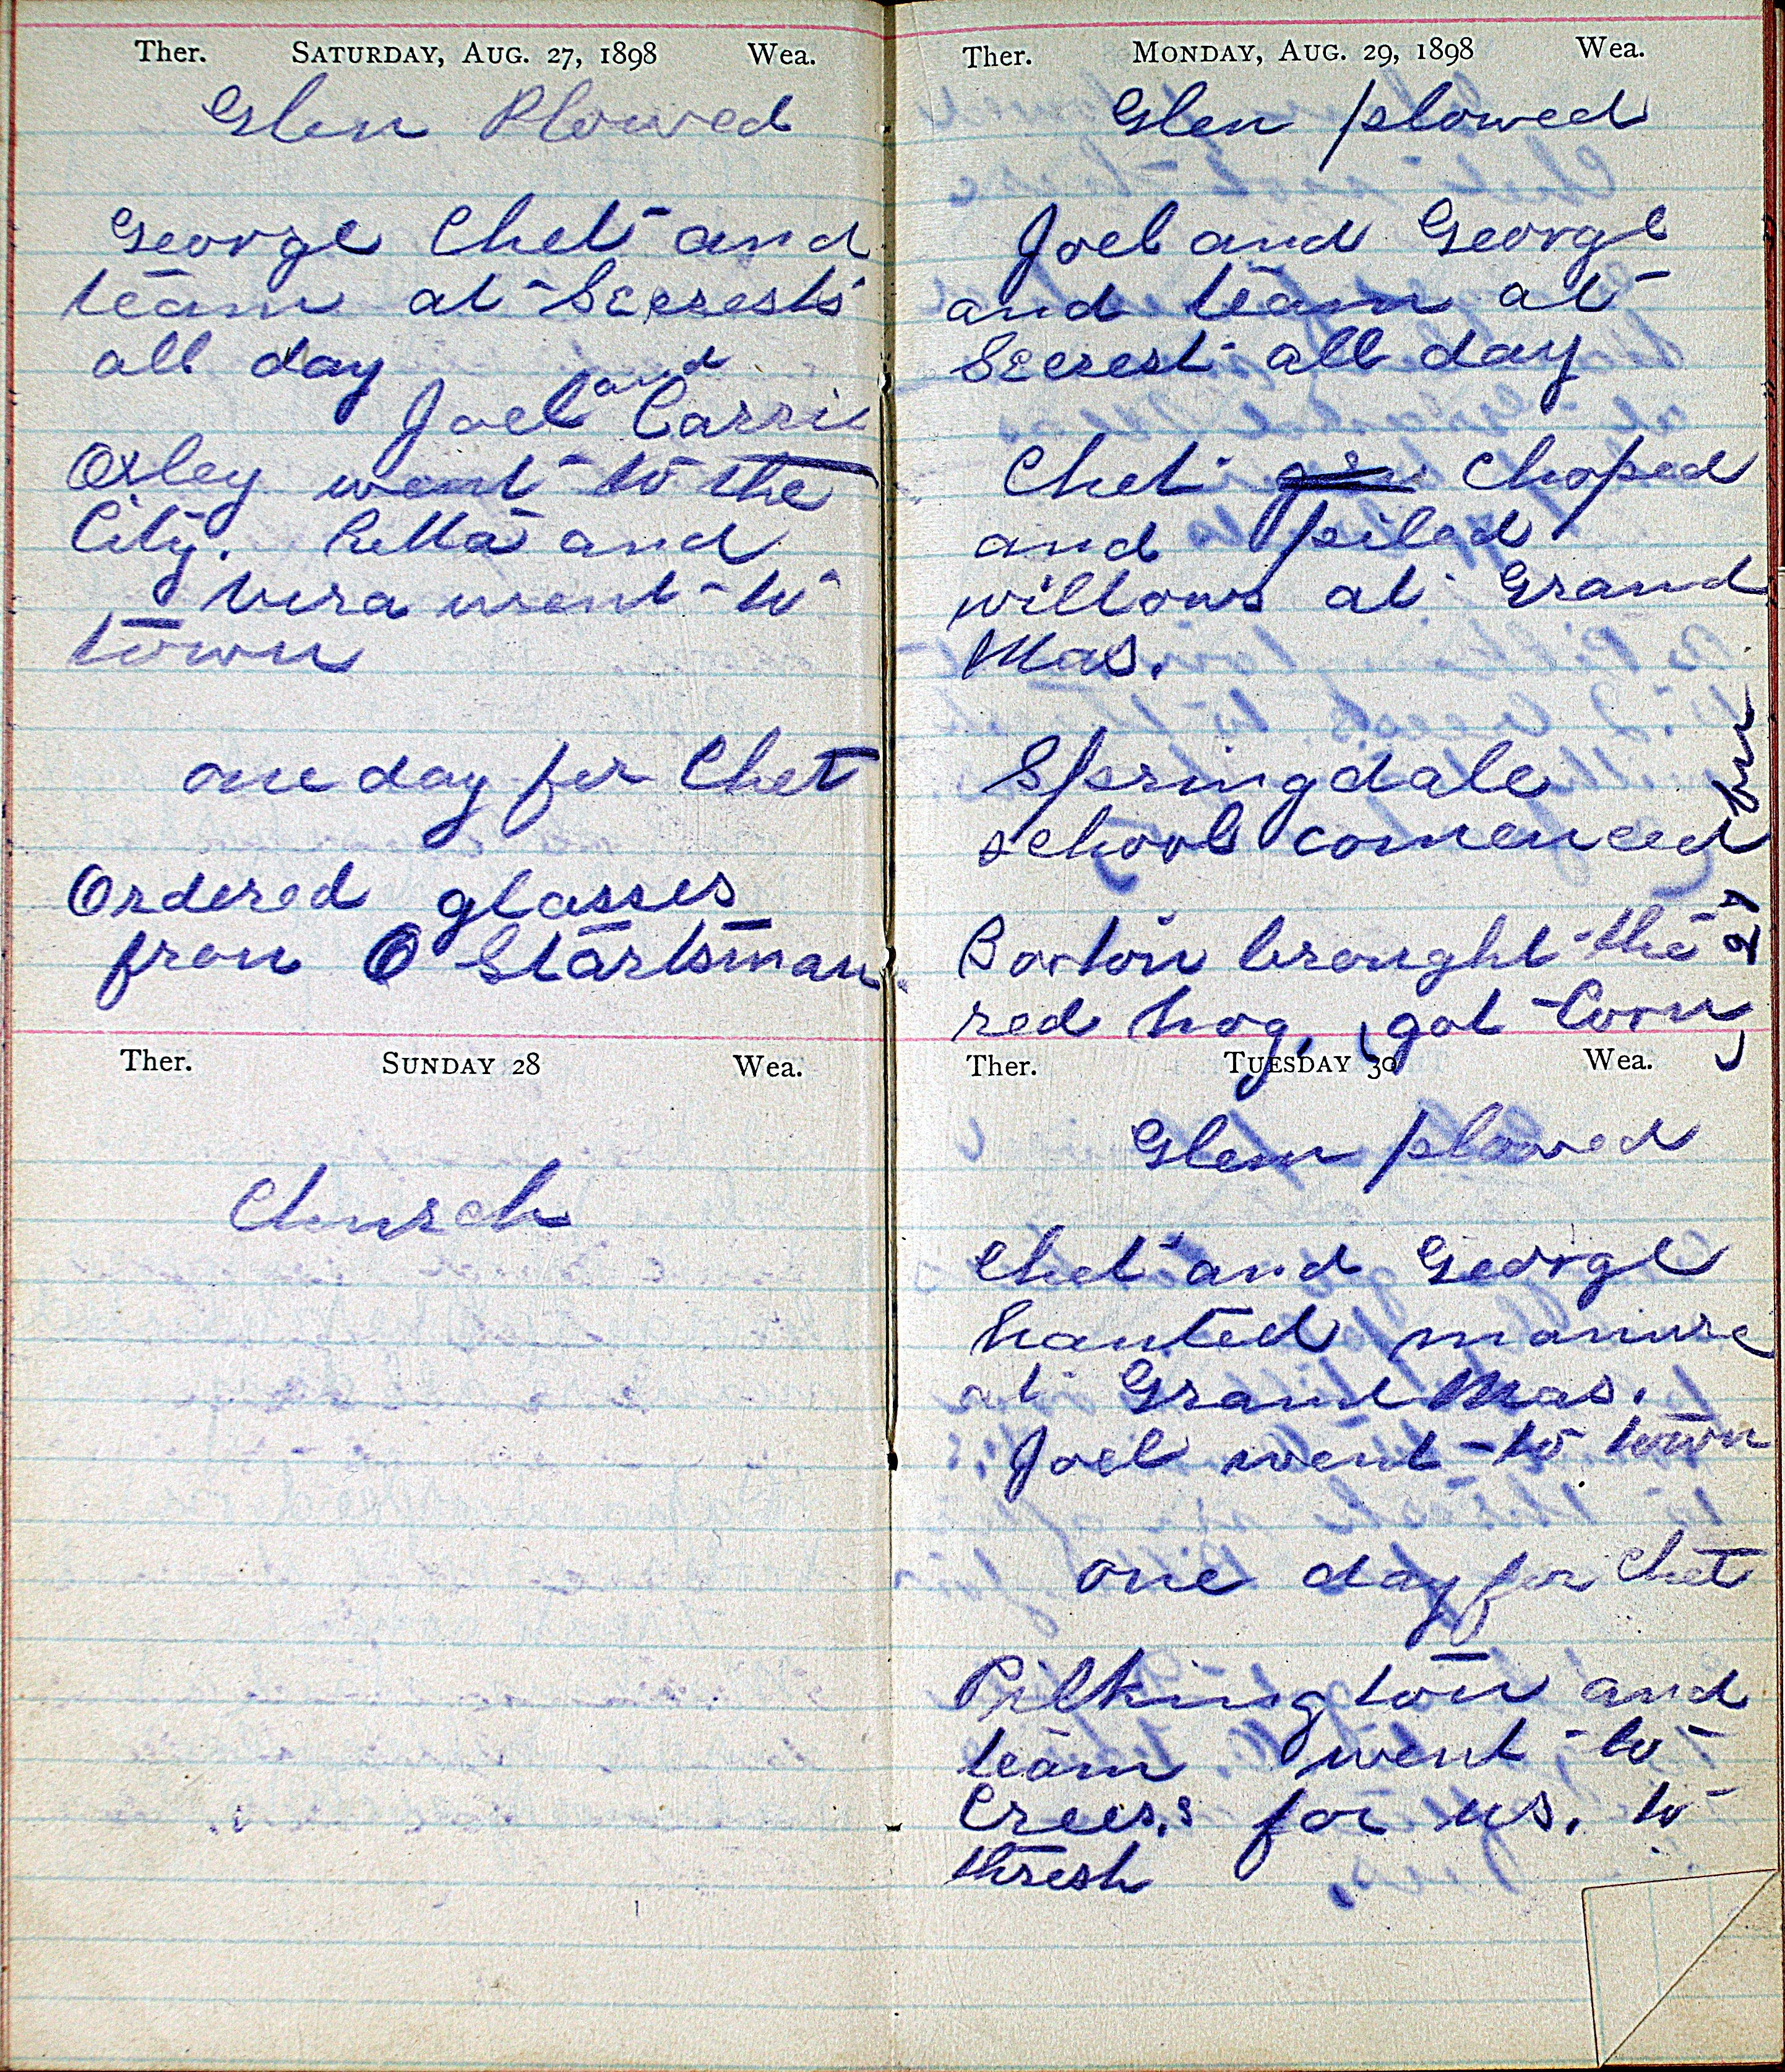 Ther. SATURDAY, AUG. 27, 1898 Wea.
Glen Plowed
George Chet and
team at Secrests
all day
Joel and Carrie
Oxley went to the
City. Retta and
Vera went to
town
one day for Chet
Ordered glasses
from O Startsman
Ther. SUNDAY 28 Wea.
Church
Ther. MONDAY, AUG. 29, 1898 Wea.
Glen plowed
Joel and George
and team at
Secrest all day
Chet Choped
and piled
willows at Grand
Mas.
Springdale
school comenced
Barton brought the
red hog, got Corn
Ther. TUESDAY 30 Wea.
Glen plowed
Chet and George
hauled manure
at Grand Mas.
Joel went to town
one day for Chet
Pilkington and
team went to
Crees,s for us. to
thresh